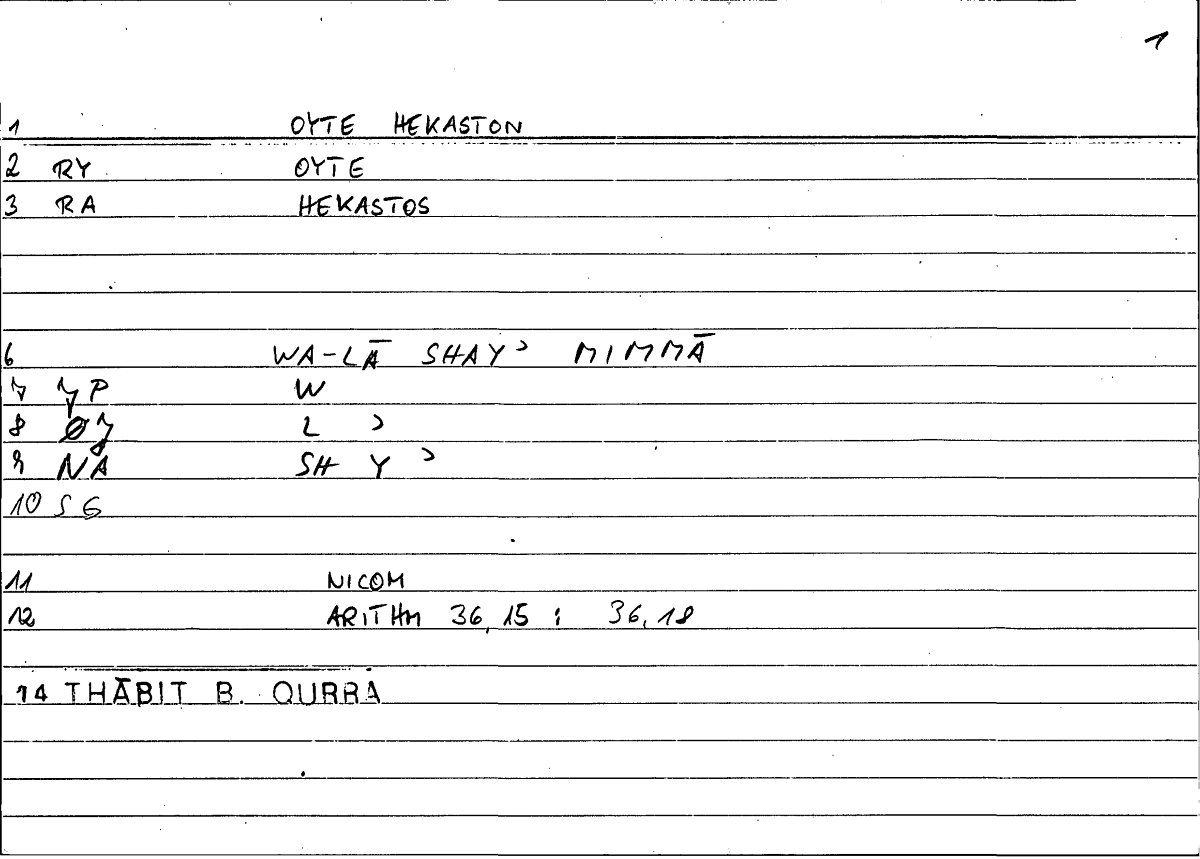 1
1 OYTE HEKASTON
2 RY OYTE
3 RA HEKASTOS
6 WA-LĀ SHAYʾ MIMMĀ
7 JP W
8 ØJ L ʾ
9 NA SH Y ʾ
10 SG
11 NICOM
12 ARITHM 36,15 ; 36,18
14 THĀBIT B. QURRA